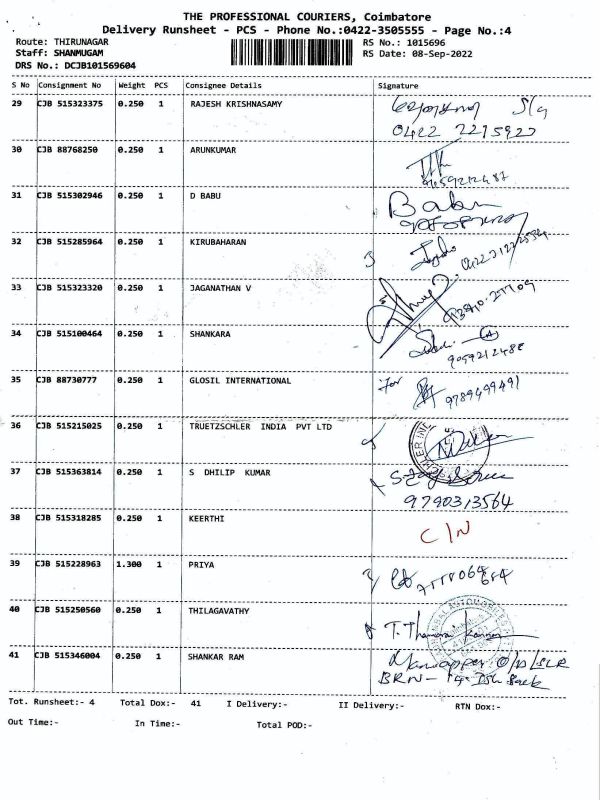 THE PROFESSIONAL COURIERS, Coimbatore
Delivery Runsheet - PCS - Phone No.:0422-3505555 - Page No.:4
Route: THIRUNAGAR RS No.: 1015696
Staff: SHANMUGAM RS Date: 08-Sep-2022
DRS No.: DCJB101569604
S No Consignment No Weight PCS Consignee Details Signature
29 CJB 515323375 0.250 1 RAJESH KRISHNASAMY
0422 2215927
30 CJB 88768250 0.250 1 ARUNKUMAR
31 CJB 515302946 0.250 1 D BABU Babu
32 CJB 515285964 0.250 1 KIRUBAHARAN
33 CJB 515323320 0.250 1 JAGANATHAN V
34 CJB 515100464 0.250 1 SHANKARA
9059212488
35 CJB 88730777 0.250 1 GLOSIL INTERNATIONAL for 9789499491
36 CJB 515215025 0.250 1 TRUETZSCHLER INDIA PVT LTD
37 CJB 515363814 0.250 1 S DHILIP KUMAR
9790313564
38 CJB 515318285 0.250 1 KEERTHI C/N
39 CJB 515228963 1.300 1 PRIYA
40 CJB 515250560 0.250 1 THILAGAVATHY T.
41 CJB 515346004 0.250 1 SHANKAR RAM
BRN-
Tot. Runsheet:- 4 Total Dox:- 41 I Delivery:- II Delivery:- RTN Dox:-
Out Time:- In Time:- Total POD:-